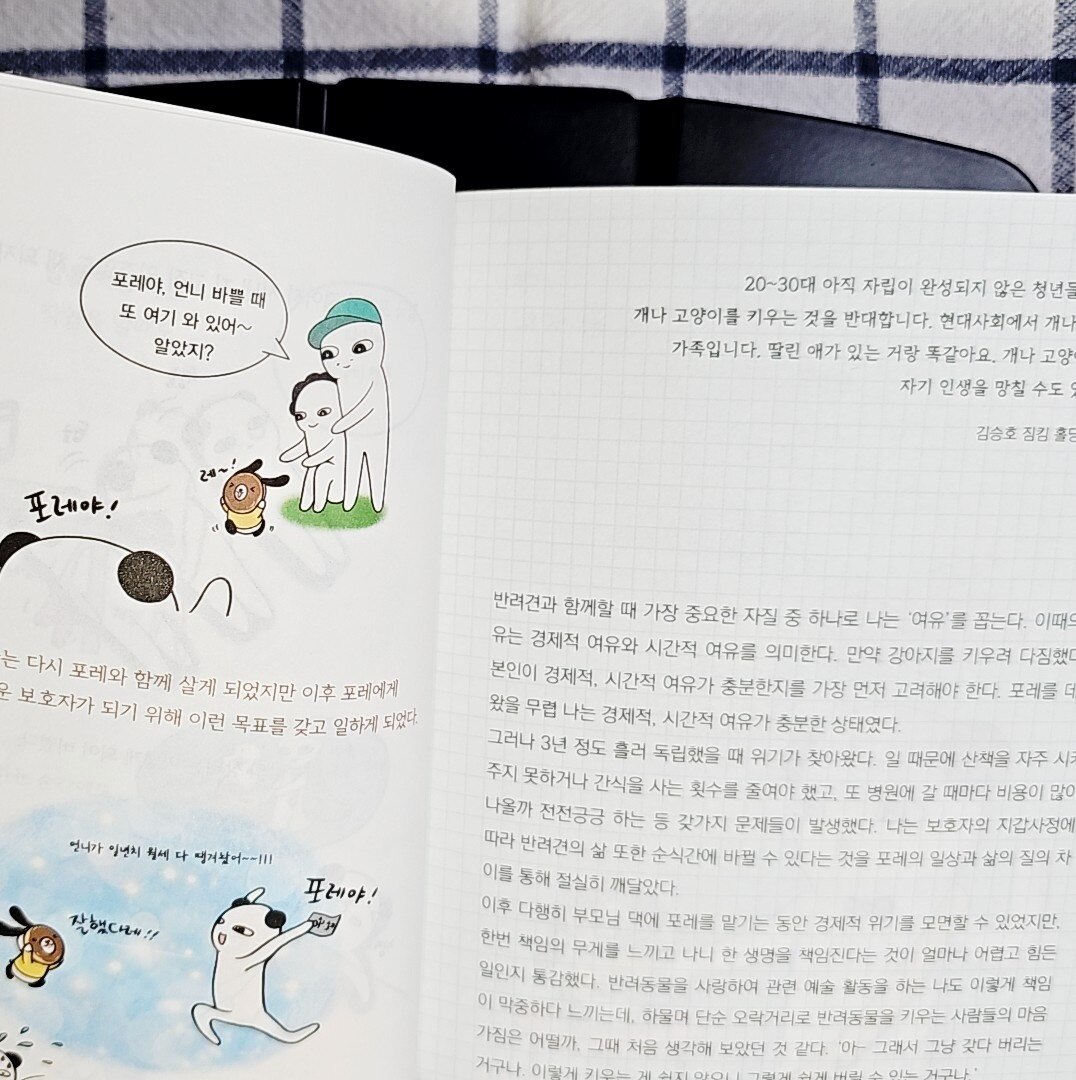 포레야, 언니 바쁠 때
또 여기 와 있어~
알았지?
레~!
포레야!
는 다시 포레와 함께 살게 되었지만 이후 포레에게
운 보호자가 되기 위해 이런 목표를 갖고 일하게 되었다.
언니가 일년치 월세 다 땡겨놨어~~!!!
포레야!
잘했다레!!
20~30대 아직 자립이 완성되지 않은 청년들
개나 고양이를 키우는 것을 반대합니다. 현대사회에서 개나
가족입니다. 딸린 애가 있는 거랑 똑같아요. 개나 고양
자기 인생을 망칠 수도
김승호 짐킴 홀딩
반려견과 함께할 때 가장 중요한 자질 중 하나로 나는 '여유'를 꼽는다. 이때의
유는 경제적 여유와 시간적 여유를 의미한다. 만약 강아지를 키우려 다짐했다
본인이 경제적, 시간적 여유가 충분한지를 가장 먼저 고려해야 한다. 포레를 데
왔을 무렵 나는 경제적, 시간적 여유가 충분한 상태였다.
그러나 3년 정도 흘러 독립했을 때 위기가 찾아왔다. 일 때문에 산책을 자주 시켜
주지 못하거나 간식을 사는 횟수를 줄여야 했고, 또 병원에 갈 때마다 비용이 많이
나올까 전전긍긍 하는 등 갖가지 문제들이 발생했다. 나는 보호자의 지갑사정에
따라 반려견의 삶 또한 순식간에 바뀔 수 있다는 것을 포레의 일상과 삶의 질의 차
이를 통해 절실히 깨달았다.
이후 다행히 부모님 댁에 포레를 맡기는 동안 경제적 위기를 모면할 수 있었지만,
한번 책임의 무게를 느끼고 나니 한 생명을 책임진다는 것이 얼마나 어렵고 힘든
일인지 통감했다. 반려동물을 사랑하여 관련 예술 활동을 하는 나도 이렇게 책임
이 막중하다 느끼는데, 하물며 단순 오락거리로 반려동물을 키우는 사람들의 마음
가짐은 어떨까, 그때 처음 생각해 보았던 것 같다. '아- 그래서 그냥 갖다 버리는
거구나. 이렇게 키우는 게 쉽지 않으니 그렇게 쉽게 버릴 수 있는 거구나.'